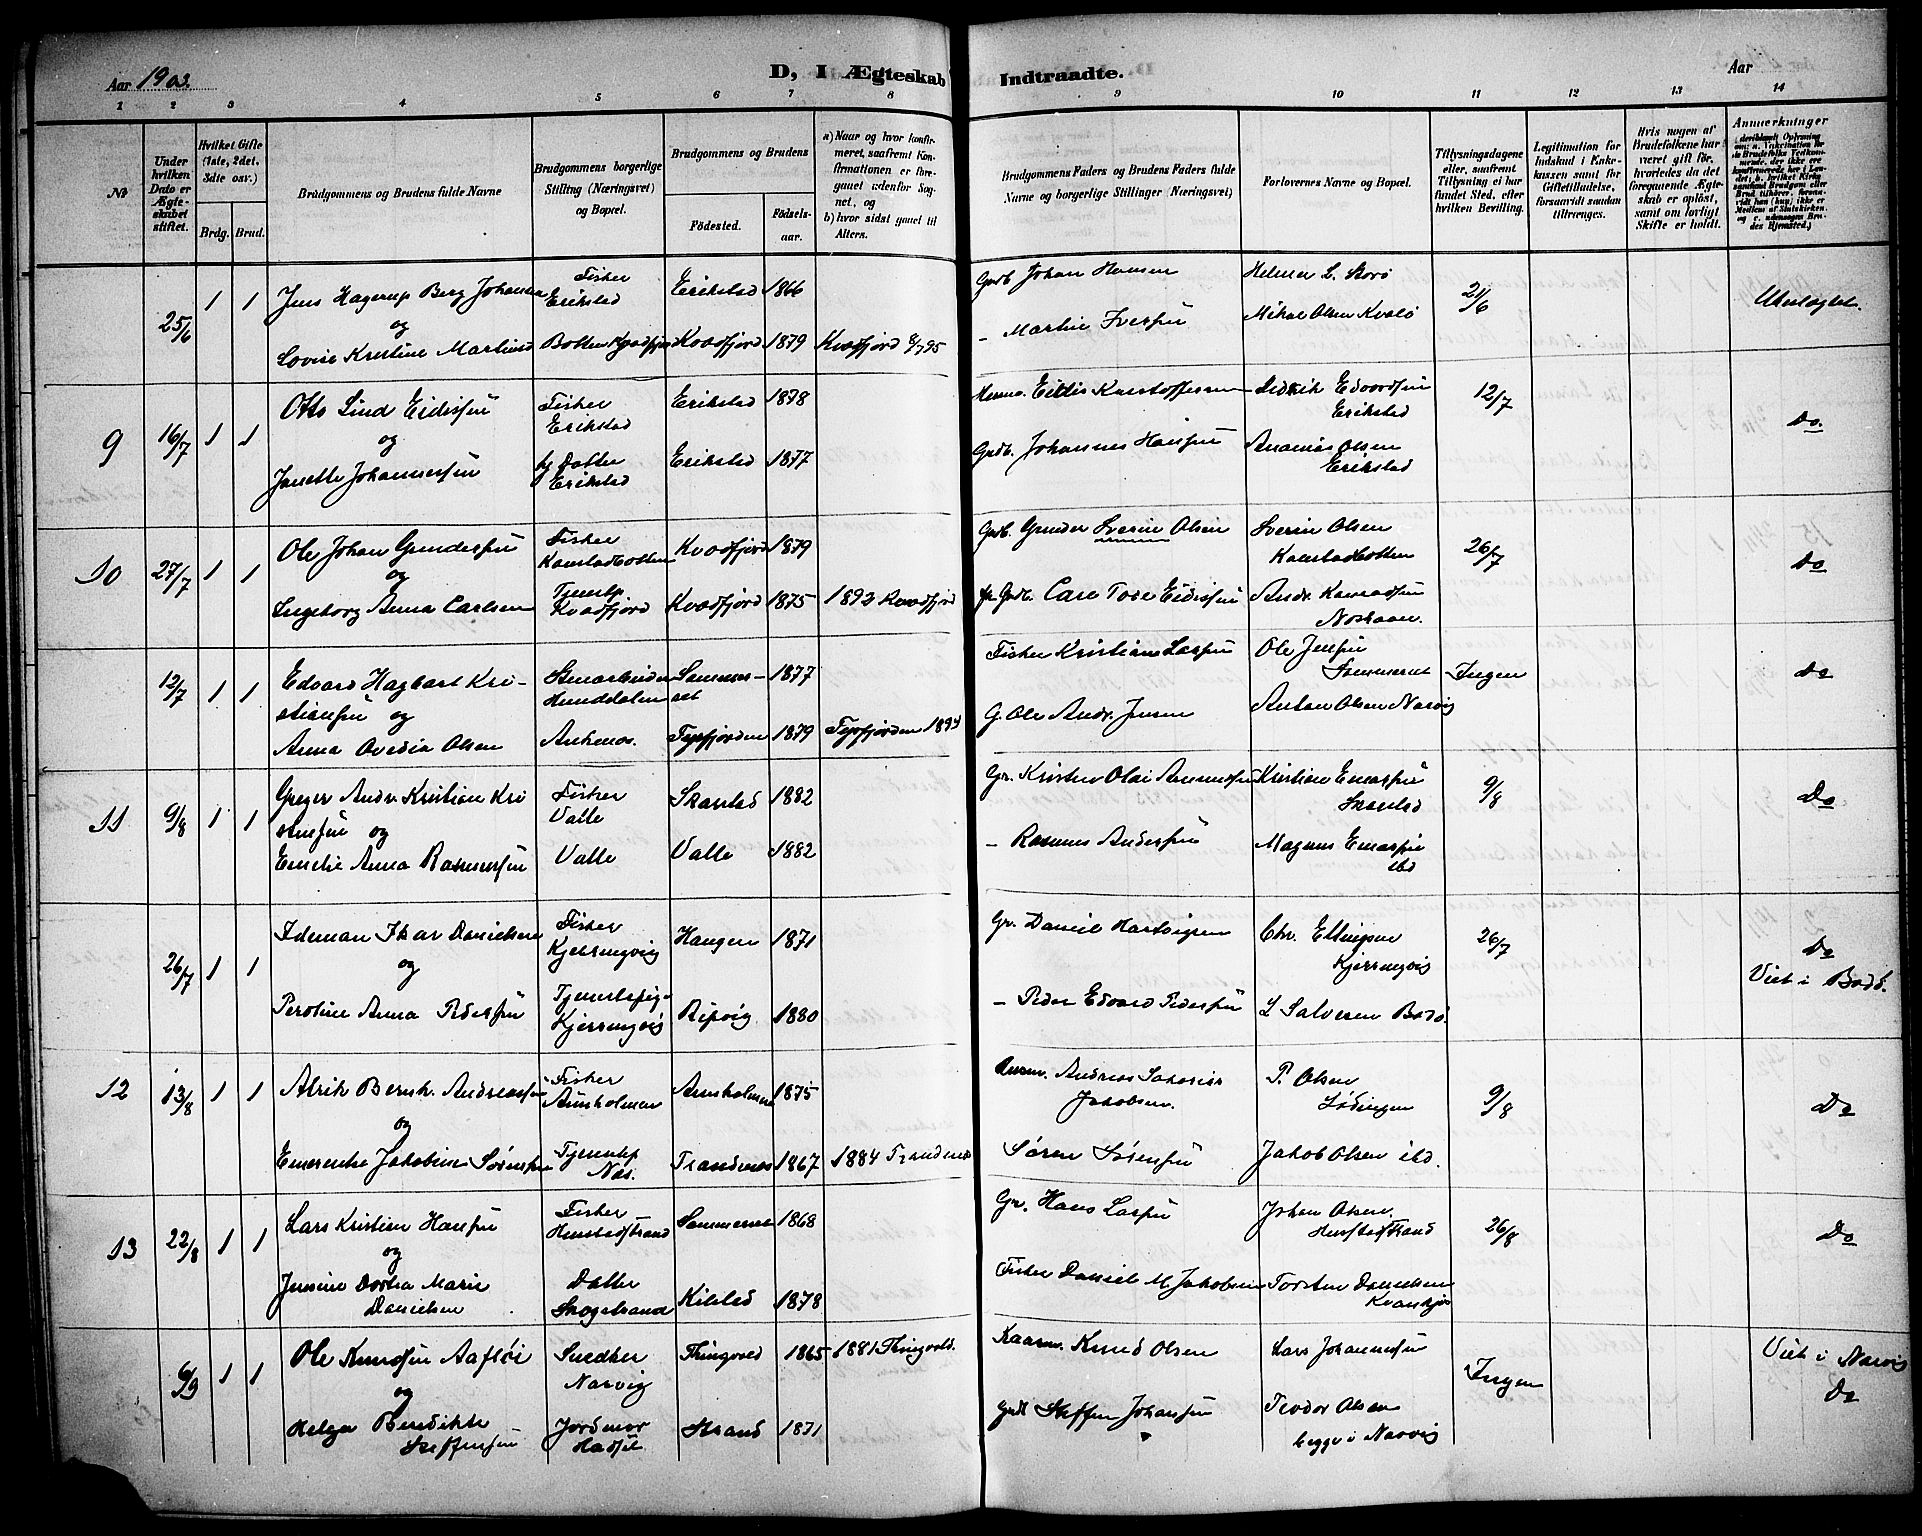 Aar 1903.
D, I Ægteskab Indtraadte.
Aar
1 2 3 4 5 6 7 8 9 10 11 12 13 14
№
Under hvilken Dato er Ægteskabet stiftet.
Hvilket Gifte (1ste, 2det, 3die osv.)
Brdg. Brud.
Brudgommens og Brudens fulde Navne
Brudgommens borgerlige Stilling (Næringsvei) og Bopæl.
Brudgommens og Brudens
Fødested.
Fødselsaar.
a) Naar og hvor konfirmeret, saafremt Konfirmationen er foregaaet udenfor Sognet, og
b) hvor sidst gaaet til Alters.
Brudgommens Faders og Brudens Faders fulde Navne og borgerlige Stillinger (Næringsvei)
Forlovernes Navne og Bopæl.
Tillysningsdagene eller, saafremt Tillysning ei har fundet Sted, efter hvilken Bevilling.
Legitimation for Indskud i Enkekassen samt for Giftetilladelse, forsaavidt saadan tiltrænges.
Hvis nogen af Brudefolkene har været gift før, hvorledes da det foregaaende Ægteskab er opløst, samt om lovligt Skifte er holdt.
Anmærkninger
25/6 1 1 Jens Hagerup Berg Johansen Fisker Erikstad Erikstad 1866 Grdb. Johan Hansen Helmer L. Storø 21/6 Ubeslægtet.
og
Lovise Kristine Martinsd Botten Kvædfjord Kvædfjord 1879 Kvæfjord 8/7 95 - Martin Iversen Mikal Olsen Kvalø
9 16/7 1 1 Otto Lind Eidissen Fisker Erikstad Erikstad 1878 Eidis Kristoffersen Edvardsen Erikstad 12/7 Do.
og
Janette Johannessen Datter Erikstad Erikstad 1877 Grdb. Johannes Hansen Ananias Olsen Erikstad
10 27/7 1 1 Ole Johan Gundersen Fisker Kanstadbotten Kvædfjord 1879 Grdb. Gunder Sverin Olsen Sverin Olsen Kanstadbotten 26/7 Do
og
Ingeborg Anna Carlsen Tjenstp. Kvædfjord Kvædfjord 1875 1892 Kvædfjord Grdb. Carl Tore Eidissen Andr. Konradsen
12/7 1 1 Edvard Hagbart Kristiansen Stenarbeider Hunddalen Sommerset 1877 Fisker Kristian Larsen Ole Jensen Sommerset Ingen Do
og
Anna Ovedia Olsen Ankenes. Tysfjorden 1879 Tysfjorden 1894 G. Ole Andr. Jensen Anton Olsen Narvig
11 9/8 1 1 Greger Andr. Kristian Kristensen Fisker Valle Skarstad 1882 Gr. Kristen Olai Kristian Enarsen Skarstad 9/8 Do
og
Emelie Anna Rasmussen Valle Valle 1882 - Rasmus Andersen Magnus Enarsen ibd
26/7 1 1 Idemar Ikar Danielsen Fisker Kjerringvig Haugen 1871 Gr. Daniel Hartvigsen Chr. Ellingsen Kjerringvig 26/7 Do
og Viet i Bodø.
Peroline Anna Pedersen Tjenestepige Kjerringvig Ripvig 1880 - Peder Edvard Pedersen L Salvesen Bodø.
12 13/8 1 1 Alrik Bernh. Andreassen Fisker Annsholmen Annsholmen 1875 Andreas Jakobsen. P. Olsen Lødingen 9/8 Do
og
Emerentse Jakobine Sørensen Tjenstp Næs. Trandenes 1867 1884 Trandenæs Søren Sørensen Jakob Olsen ibd.
13 22/8 1 1 Lars Kristian Hansen Fisker Henstadstrand Sommerset 1868 Gr. Hans Larsen Johan Olsen. Henstadstrand 26/8 Do
og
Jensine Dortea Marie Danielsen Datter Skogstrand Kilstad 1878 Fisker Daniel M. Jakobsen Torsten Danielsen
6/9 1 1 Ole Knudsen Aafløi Snedker Narvig Thingvold 1865 1881 Thingvold. Knud Olsen Lars Johannesen Ingen Viet i Narvig
og Do
Helga Benedikte Steffensen Jordmor Hadsel Strand 1871 Grdb Steffen Johansen Teodor Olsen begge i Narvig